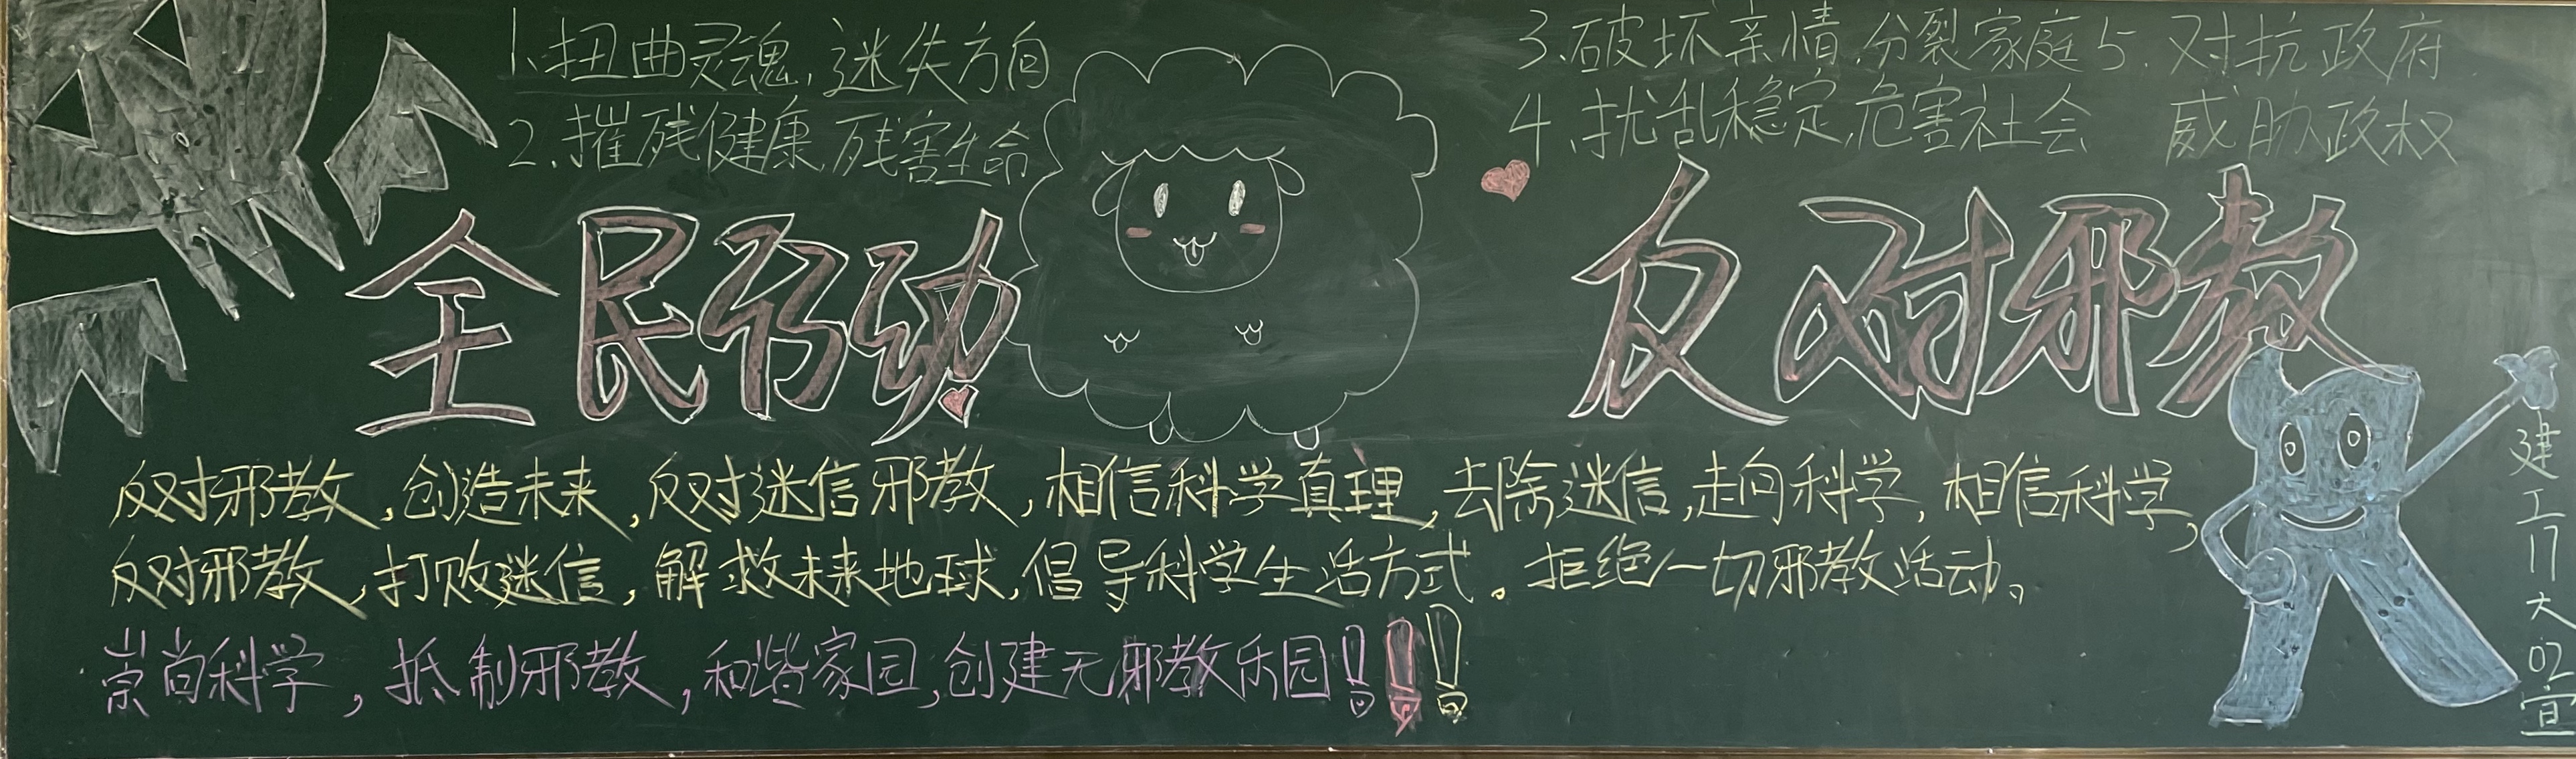 1、扭曲灵魂、迷失方向
2、摧残健康 残害生命
3、破坏亲情、分裂家庭
4、扰乱稳定、危害社会
5、对抗政府
威胁政权
全民行动
反对邪教
反对邪教,创造未来,反对迷信邪教,相信科学真理,去除迷信,走向科学,相信科学,
反对邪教,打败迷信,解救未来地球,倡导科学生活方式。拒绝一切邪教活动。
崇尚科学,抵制邪教,和谐家园,创建无邪教乐园!!!
建工17大02宣